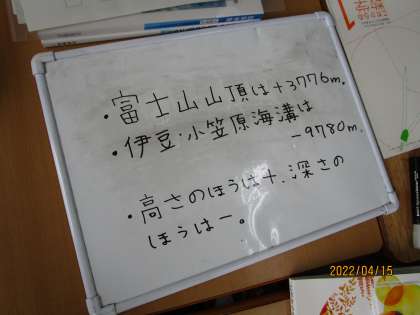 ・富士山山頂は+3776m。
・伊豆・小笠原海溝は
−9780m。
・高さのほうは+、深さの
ほうは−。
2022/04/15